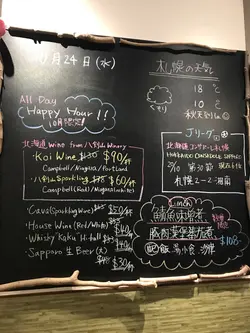 0月24日(水)
All Day
Happy Hour!!
10月限定!
北海道 Wine from 八剣山 Winery
・Koi Wine $90/杯
Campbell/Niagara/Portland
・八剣山 Sparkling $60/杯
Campbell(Red)/Niagara(white)
・Cava(Sparkling Wine) $50/杯
・House Wine (Red/White) $40/杯
・Whisky "Kaku" Hi-ball $40/杯
・Sapporo 生 Beer(大) $30/杯
札幌の天気
くもり
18℃
10℃
秋天到la
Jリーグ
北海道コンサドーレ札幌
HOKKAIDO CONSADOLE SAPPORO
第30節
札幌 2-2 湘南
Lunch
鯖魚味噌煮
配 飯 湯 小食 沙律
$108